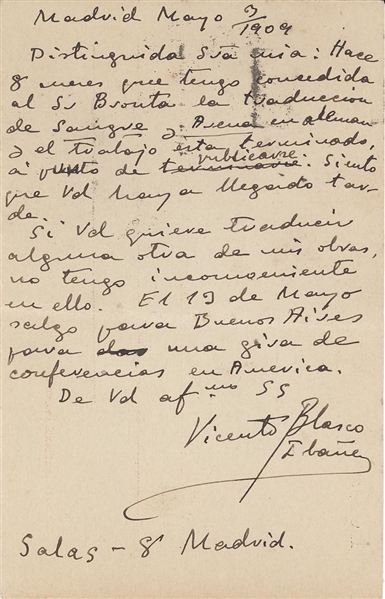 Madrid Mayo 3/1909
Distinguida Sra mia: Hace
8 meses que tengo concedida
al Sr Bronta la traduccion
de Sangre y Arena en aleman
y el trabajo esta terminado,
a punto de terminarse publicarse. Siento
que Vd haya llegado tar-
de.
Si Vd quiere traducir
alguna otra de mis obras,
no tengo inconveniente
en ello. El 19 de Mayo
salgo para Buenos Aires
para una gira de
conferencias en America.
De Vd af.mo SS
Vicente Blasco
Ibañez
Salas - 8 Madrid.